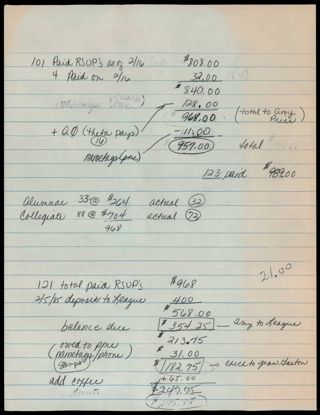 101 Paid RSUP's as of 2/16 $808.00
4 Paid on 2/16 32.00
$840.00
128.00
+ AΦ (theta pays) 968.00 (total to Amy Price)
(16)
-11.00
nametags (pme) 957.00 total
123 paid $989.00
Alumnae 33@ $264 actual (32)
Collegiate 88@ $704 actual (72)
968
21.00
121 total paid RSUP's $968
2/5/15 deposit to League 400
$568.00
balance due $354.25 — Amy to League
$213.75
owed to pme $31.00
(nametags/phone)
$182.75
add coffee +65.00
donuts $247.75